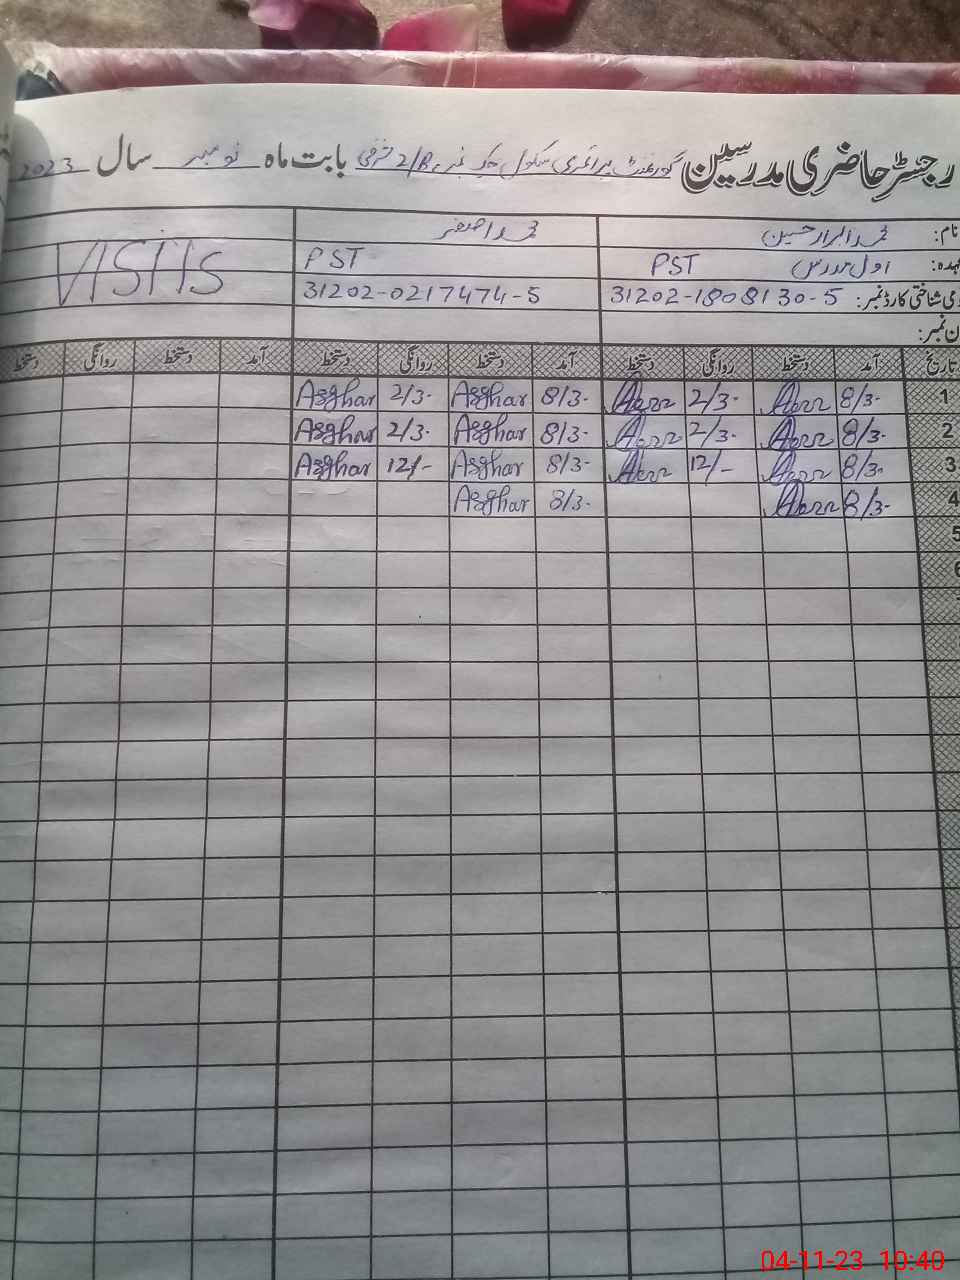 رجسٹر حاضری مدرسین گورنمنٹ پرائمری سکول چک نمبر 2/R بابت ماہ نومبر سال 2023
نام: محمد ابرار حسین محمد اصغر
عہدہ: اول مدرس PST PST VISITS
قومی شناختی کارڈ نمبر: 31202-1808130-5 31202-0217474-5
ن نمبر:
تاریخ آمد دستخط روانگی دستخط آمد دستخط روانگی دستخط آمد دستخط روانگی دستخط
1 8/3- 2/3- 8/3- Asghar 2/3- Asghar
2 8/3- 2/3- 8/3- Asghar 2/3- Asghar
3 8/3- 12/- 8/3- Asghar 12/- Asghar
4 8/3- 8/3- Asghar
5
6
04-11-23 10:40